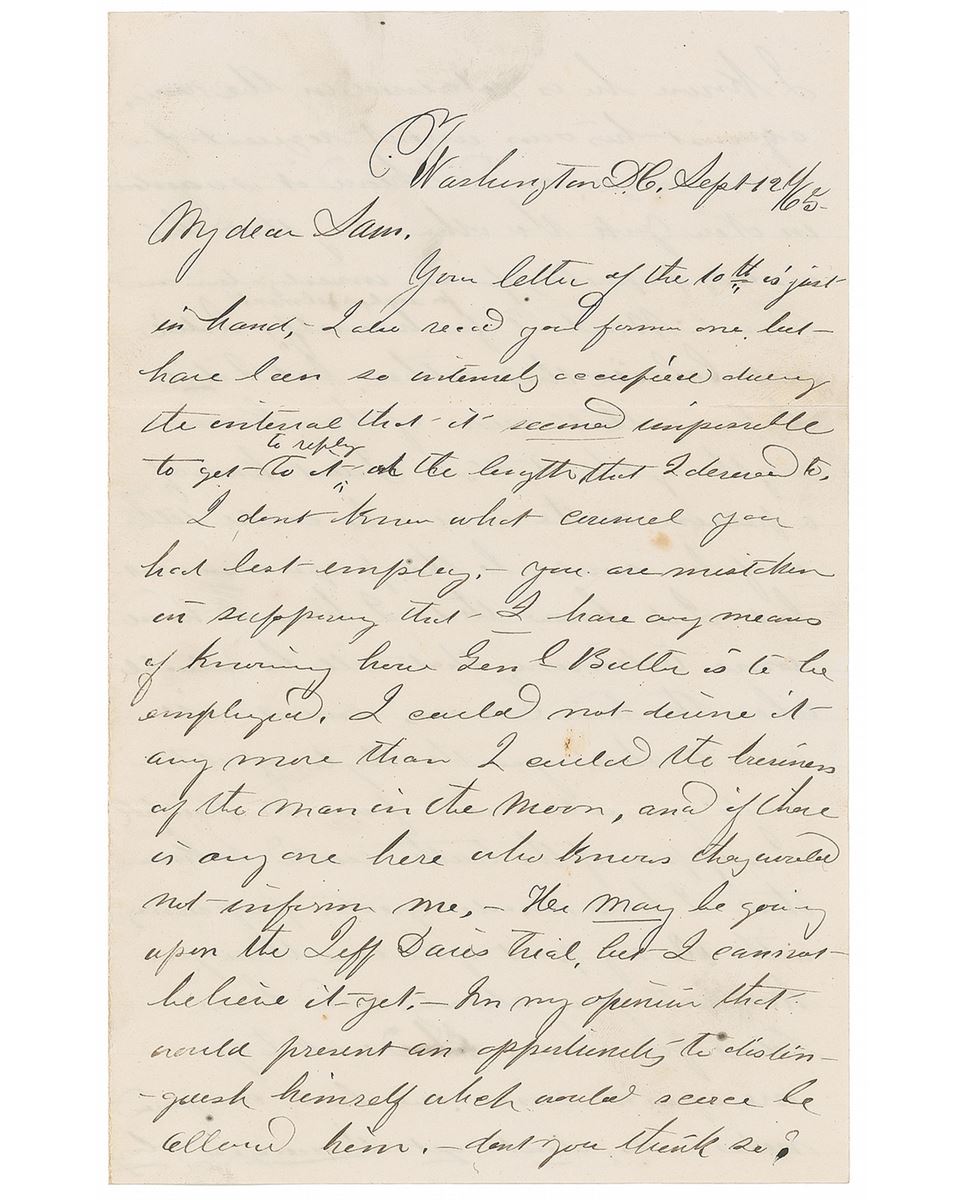 Washington DC, Sept 12th/65-
My dear Sam.
Your letter of the 10th is just
in hand, - I also recd your former one, but-
have been so intensely occupied during
the interval that it seemed impossible
to reply
to get to it at the length that I desired to.
I dont know what counsel you
had best employ. - you are mistaken
in supposing that I have any means
of knowing how Genl Butler is to be
employed. I could not divine it
any more than I could the business
of the man in the Moon, and if there
is any one here who knows they would
not inform me. - He may be going
upon the Jeff Davis trial, but I cannot
believe it yet. - In my opinion that
would present an opportunity to distin-
-guish himself which would scarce be
allowed him. - dont you think so?